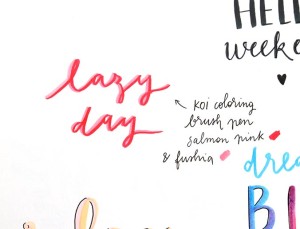 HELL
weeke
lazy
day
koi coloring
brush pen
salmon pink
& fushia
drea